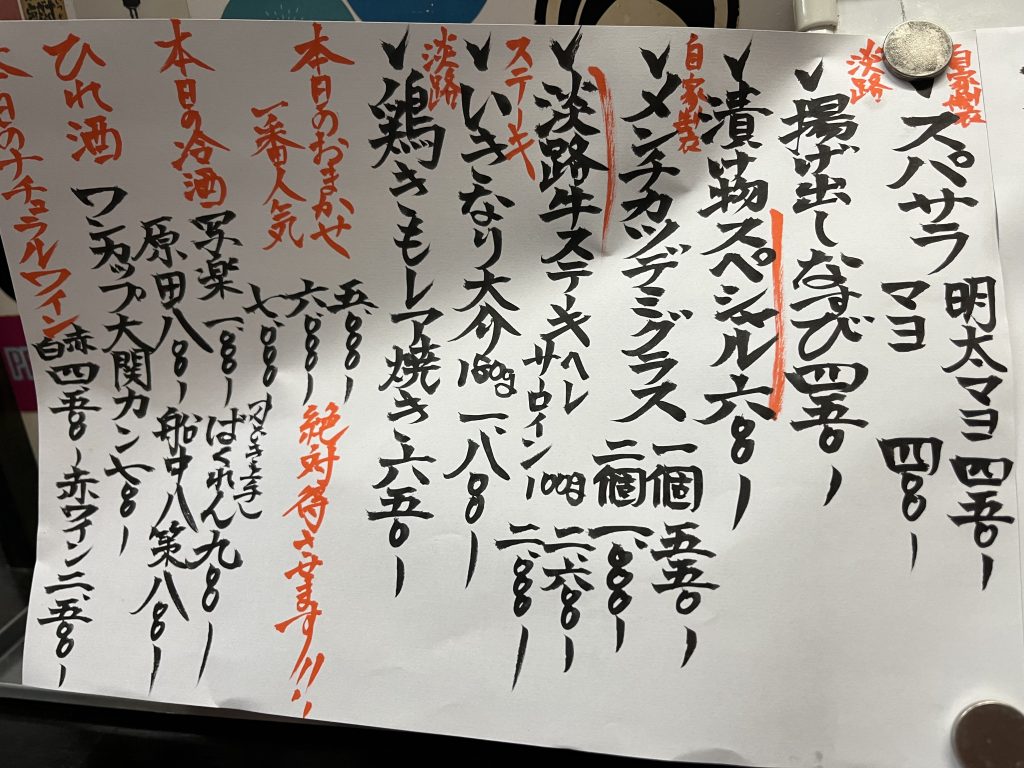 自家製
スパサラ
明太マヨ 四五〇ー
マヨ 四〇〇ー
淡路
揚げ出しなすび 四五〇ー
漬け物スペシャル 六〇〇ー
自家製
メンチカツデミグラス
一個 五五〇ー
二個 一、〇〇〇ー
淡路牛ステーキ ヘレ 100g 二、六〇〇ー
サーロイン 二、〇〇〇ー
ステーキ
いきなり大介 160g 一、八〇〇ー
淡路
鶏きもレア焼き 六五〇ー
本日のおまかせ
一番人気
五、〇〇〇ー
六、〇〇〇ー
七、〇〇〇
絶対得させます!!!
本日の冷酒
写楽 一、〇〇〇ー ばくれん 九〇〇ー
原田 八〇〇ー 船中八策 八〇〇ー
ひれ酒
ワンカップ大関カン 七〇〇ー
本日のナチュラルワイン
赤
白
四五〇ー 赤ワイン 二、五〇〇ー